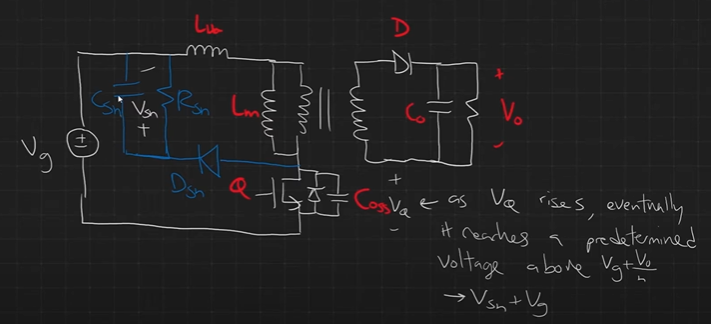 Llk
D
Csn
Vsn
Rsn
Lm
Co
+
Vo
-
Vg
Dsn
Q
Coss
+
VQ
-
← as VQ rises, eventually
it reaches a predetermined
voltage above Vg+Vo/n
→ Vsn + Vg